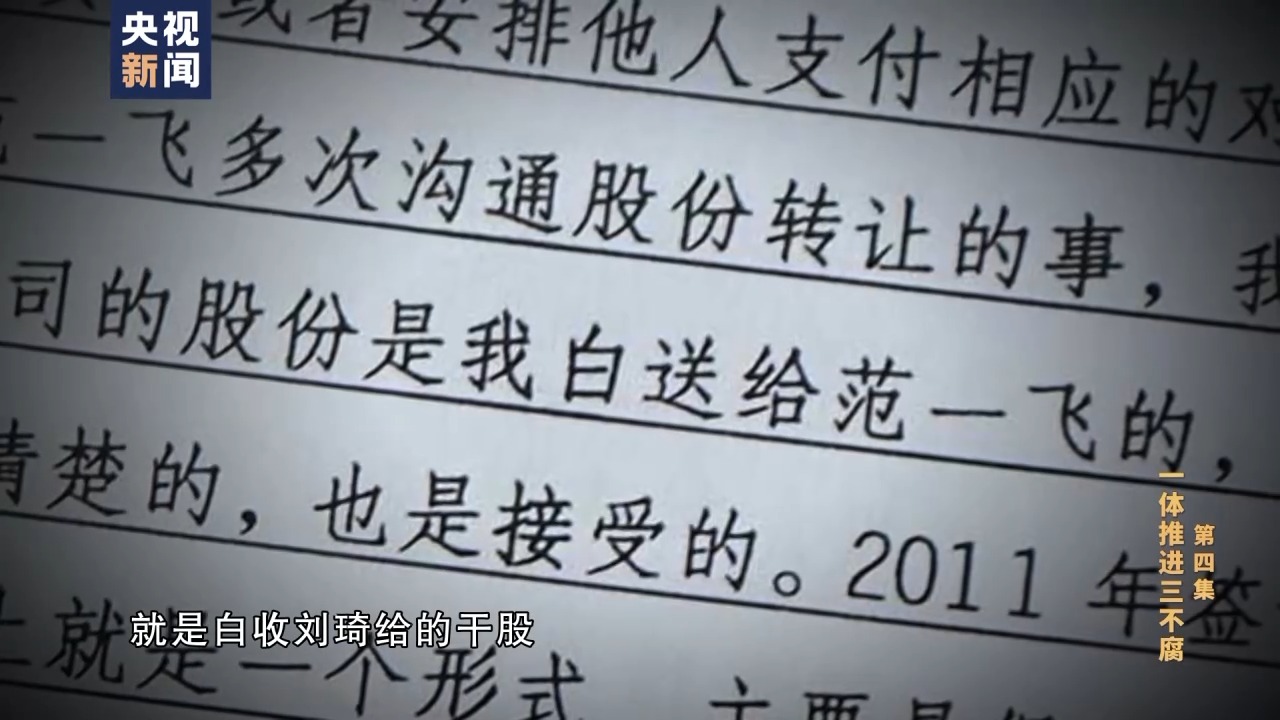 央视
新闻
或者安排他人支付相应的对
一飞多次沟通股份转让的事，我
司的股份是我白送给范一飞的，
清楚的，也是接受的。2011年签
上就是一个形式，主要是
就是白收刘琦给的干股
第四集
一体推进三不腐